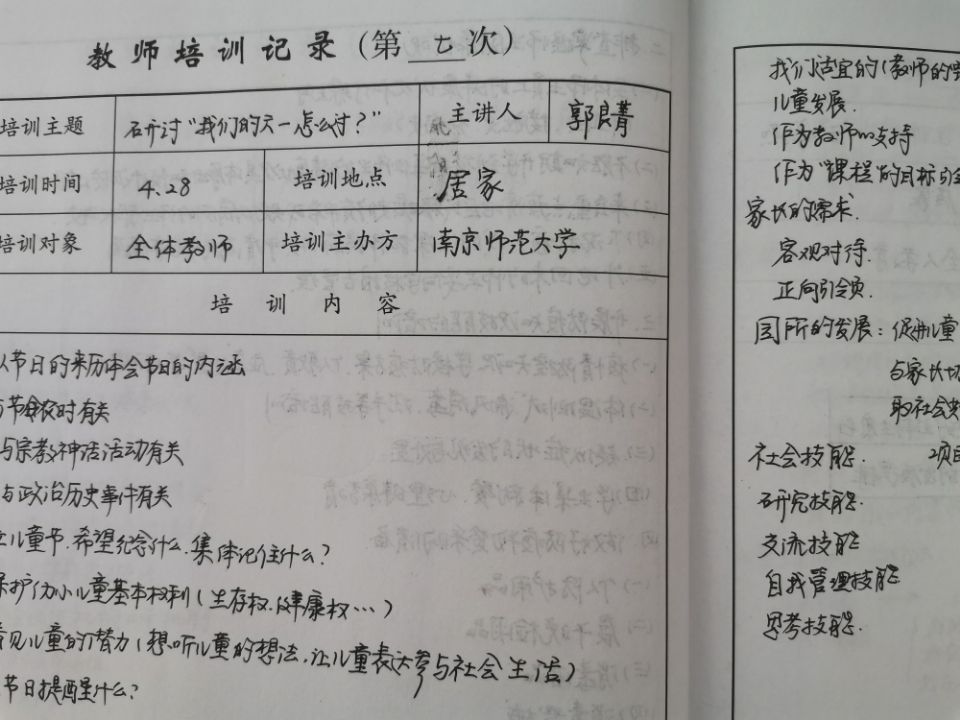 教师培训记录（第 七 次）
培训主题 研讨“我们的六一怎么过？” 主讲人 郭良菁
培训时间 4.28 培训地点 居家
培训对象 全体教师 培训主办方 南京师范大学
培训内容
从节日的来历体会节日的内涵
与节候农时有关
与宗教神话活动有关
与政治历史事件有关
儿童节.希望纪念什么.集体记住什么？
保护幼小儿童基本权利（生存权.健康权…）
看见儿童的潜力（想.听儿童的想法，让儿童表达参与社会生活）
节日提醒是什么？
我们决定的（教师的
儿童发展.
作为教师的支持
作为“课程”的目标引
家长的需求.
客观对待.
正向引领.
园所的发展：促进儿童
与家长
取社会
社会技能. 项目
研究技能.
交流技能
自我管理技能
思考技能.